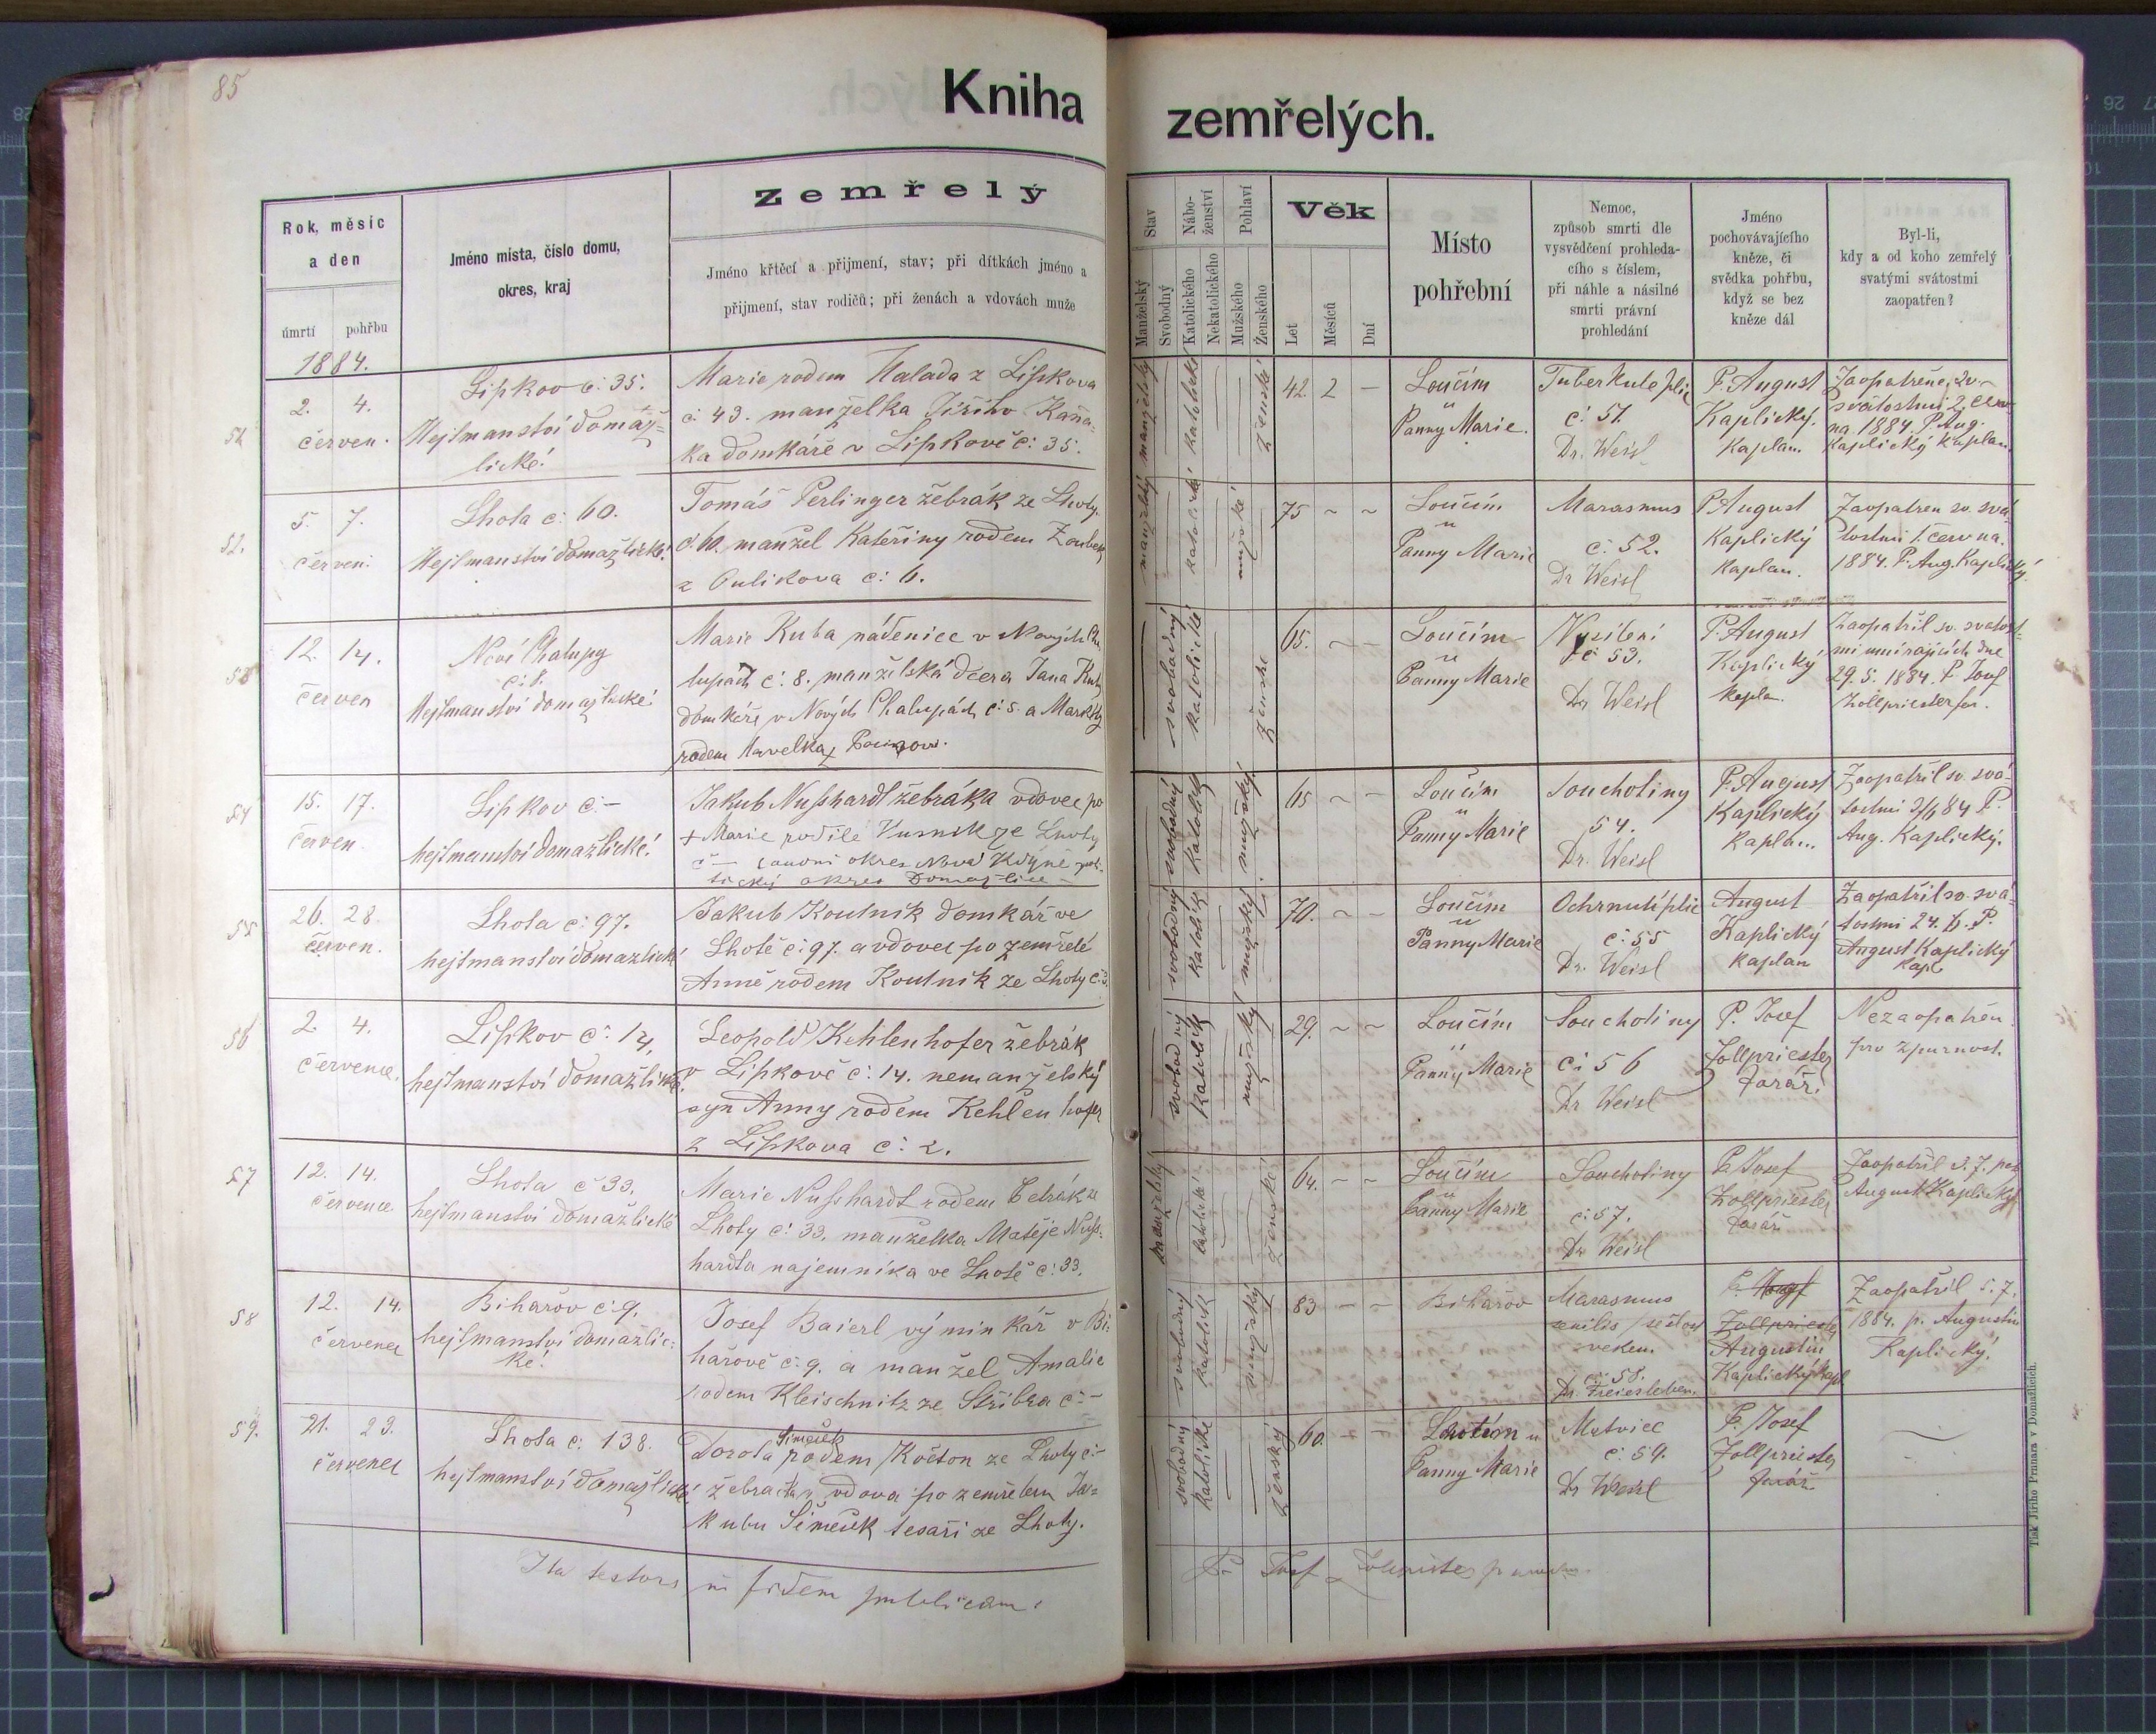 85
Kniha zemřelých.
Rok, měsíc
a den
úmrtí pohřbu
Jméno místa, číslo domu,
okres, kraj
Zemřelý
Jméno křtěcí a přijmení, stav; při dítkách jméno a
přijmení, stav rodičů; při ženách a vdovách muže
Stav
Manželský
Svobodný
Nábo-
ženství
Katolického
Nekatolického
Pohlaví
Mužského
Ženského
Věk
Let
Měsíců
Dní
Místo
pohřební
Nemoc,
způsob smrti dle
vysvědčení prohleda-
cího s číslem,
při náhle a násilné
smrti právní
prohledání
Jméno
pochovávajícího
kněze, či
svědka pohřbu,
když se bez
kněze dál
Byl-li,
kdy a od koho zemřelý
svatými svátostmi
zaopatřen?
1884.
51
2. 4.
červen.
Lipkov č: 35.
Hejtmanství domaž=
lické.
Marie rodem Halada z Lipkova
č: 43. manželka Jiřího Kaňa-
ka domkáře v Lipkově č: 35.
manželský
katolické
ženské
42. 2 –
Loučím
u
Panny Marie.
Tuberkule plic
č: 51.
Dr. Weisl
P. August
Kaplický.
Kaplan.
Zaopatřena sv.
svátostmi 2. červ-
na 1884. P. Aug.
Kaplický Kaplan
52.
5. 7.
červen.
Lhota č: 60.
Hejtmanství domažlické.
Tomáš Perlinger žebrák ze Lhoty
č: 60. manžel Kateřiny rodem Zoubek
z Oulikova č: 6.
manželský
katolické
mužské
75 ~ ~
Loučím
u
Panny Marie
Marasmus
č: 52.
Dr Weisl
P. August
Kaplický
Kaplan.
Zaopatřen sv. svá-
tostmi 1. června.
1884. P. Aug. Kaplický.
53
12. 14.
červen
Nové Chalupy
č: 8.
Hejtmanství domažlické.
Marie Kuba nádenice v Nových Cha-
lupách č: 8. manželská dcera Jana Kuby
domkáře v Nových Chalupách č: 5. a Markéty
rodem Havelka
svobodný
katolické
ženské
65. ~ ~
Loučím
u
Panny Marie
Vysílení
č: 53.
Dr Weisl
P. August
Kaplický
Kaplan.
Zaopatřil sv. svátost-
mi umírajících dne
29. 5. 1884. P. Josef
Zollpriester far.
54
15. 17.
červen.
Lipkov č: –
hejtmanství domažlické.
Jakub Nußhardt žebráka vdovec po
+ Marie rodilé ze Lhoty
č – soudní okres Nová Kdyně poli-
tický okres Domažlice –
svobodný
Katolický
mužský.
65 ~ ~
Loučím
u
Panny Marie
Souchotiny
54.
Dr. Weisl
P. August
Kaplický
Kaplan.
Zaopatřil sv. svá-
tostmi 3/6 84 P.
Aug. Kaplický.
55
26. 28.
červen.
Lhota č: 97.
hejtmanství domažlické
Jakub Koutník domkář ve
Lhotě č: 97. a vdovec po zemřelé
Anně rodem Koutník ze Lhoty č: 3.
svobodný
katolický
mužský
70. ~ ~
Loučím
u
Panny Marie
Ochrnutí plic
č: 55
Dr. Weisl
August
Kaplický
Kaplan
Zaopatřil sv. svá-
tostmi 24. 6. P.
August Kaplický
Kapl
56
2. 4.
července.
Lipkov č: 14.
hejtmanství domažlické.
Leopold Kehlenhofer žebrák
v Lipkově č: 14. nemanželský
syn Anny rodem Kehlenhofer
z Lipkova č: 2.
svobodný
Katolický
mužský
29. ~ ~
Loučím
u
Panny Marie
Souchotiny
č: 56
Dr Weisl
P. Josef
Zollpriester
farář.
Nezaopatřen
pro zpurnost.
57
12. 14.
července
Lhota č 33.
hejtmanství domažlické
Marie Nußhardt rodem ze
Lhoty č: 33. manželka Matěje Nuß-
hardta najemníka ve Lhotě č: 33.
manželský
katolické
ženské
64. ~ ~
Loučím
u
Panny Marie
Souchotiny
č: 57.
Dr Weisl
P. Josef
Zollpriester
farář
Zaopatřil 3. 7.
August Kaplický
58
12. 14.
července
Bihařov č: 9.
hejtmanství domažlic=
ké.
Josef Baierl výminkář v Bi-
hařově č: 9. a manžel Amalie
rodem Kleischnitz ze Stříbra č: –
svobodný
katolický
mužský
83 – ~
Bihařov
Marasmus
senilis / sešlost
věkem
č: 58.
Dr. Freiesleben.
P. Josef
Zollpriester
Augustin
Kaplický kapl
Zaopatřil 5. 7.
1884. p. Augustin
Kaplický.
59.
21. 23.
červenec
Lhota č: 138.
hejtmanství domažlické
Šimeček
Dorota rodem Květon ze Lhoty č: –
žebračka, vdova po zemřelém Ja=
kubu Šimeček tesaři ze Lhoty.
svobodný
katolické
ženský
60. ~ –
Loučím u
Panny Marie
Mrtvice
č: 59.
Dr Weisl
P. Josef
Zollpriester
farář
Ita testor in fidem publicam.
Josef Zollpriester
Tisk Jiřího Prunara v Domažlicích.